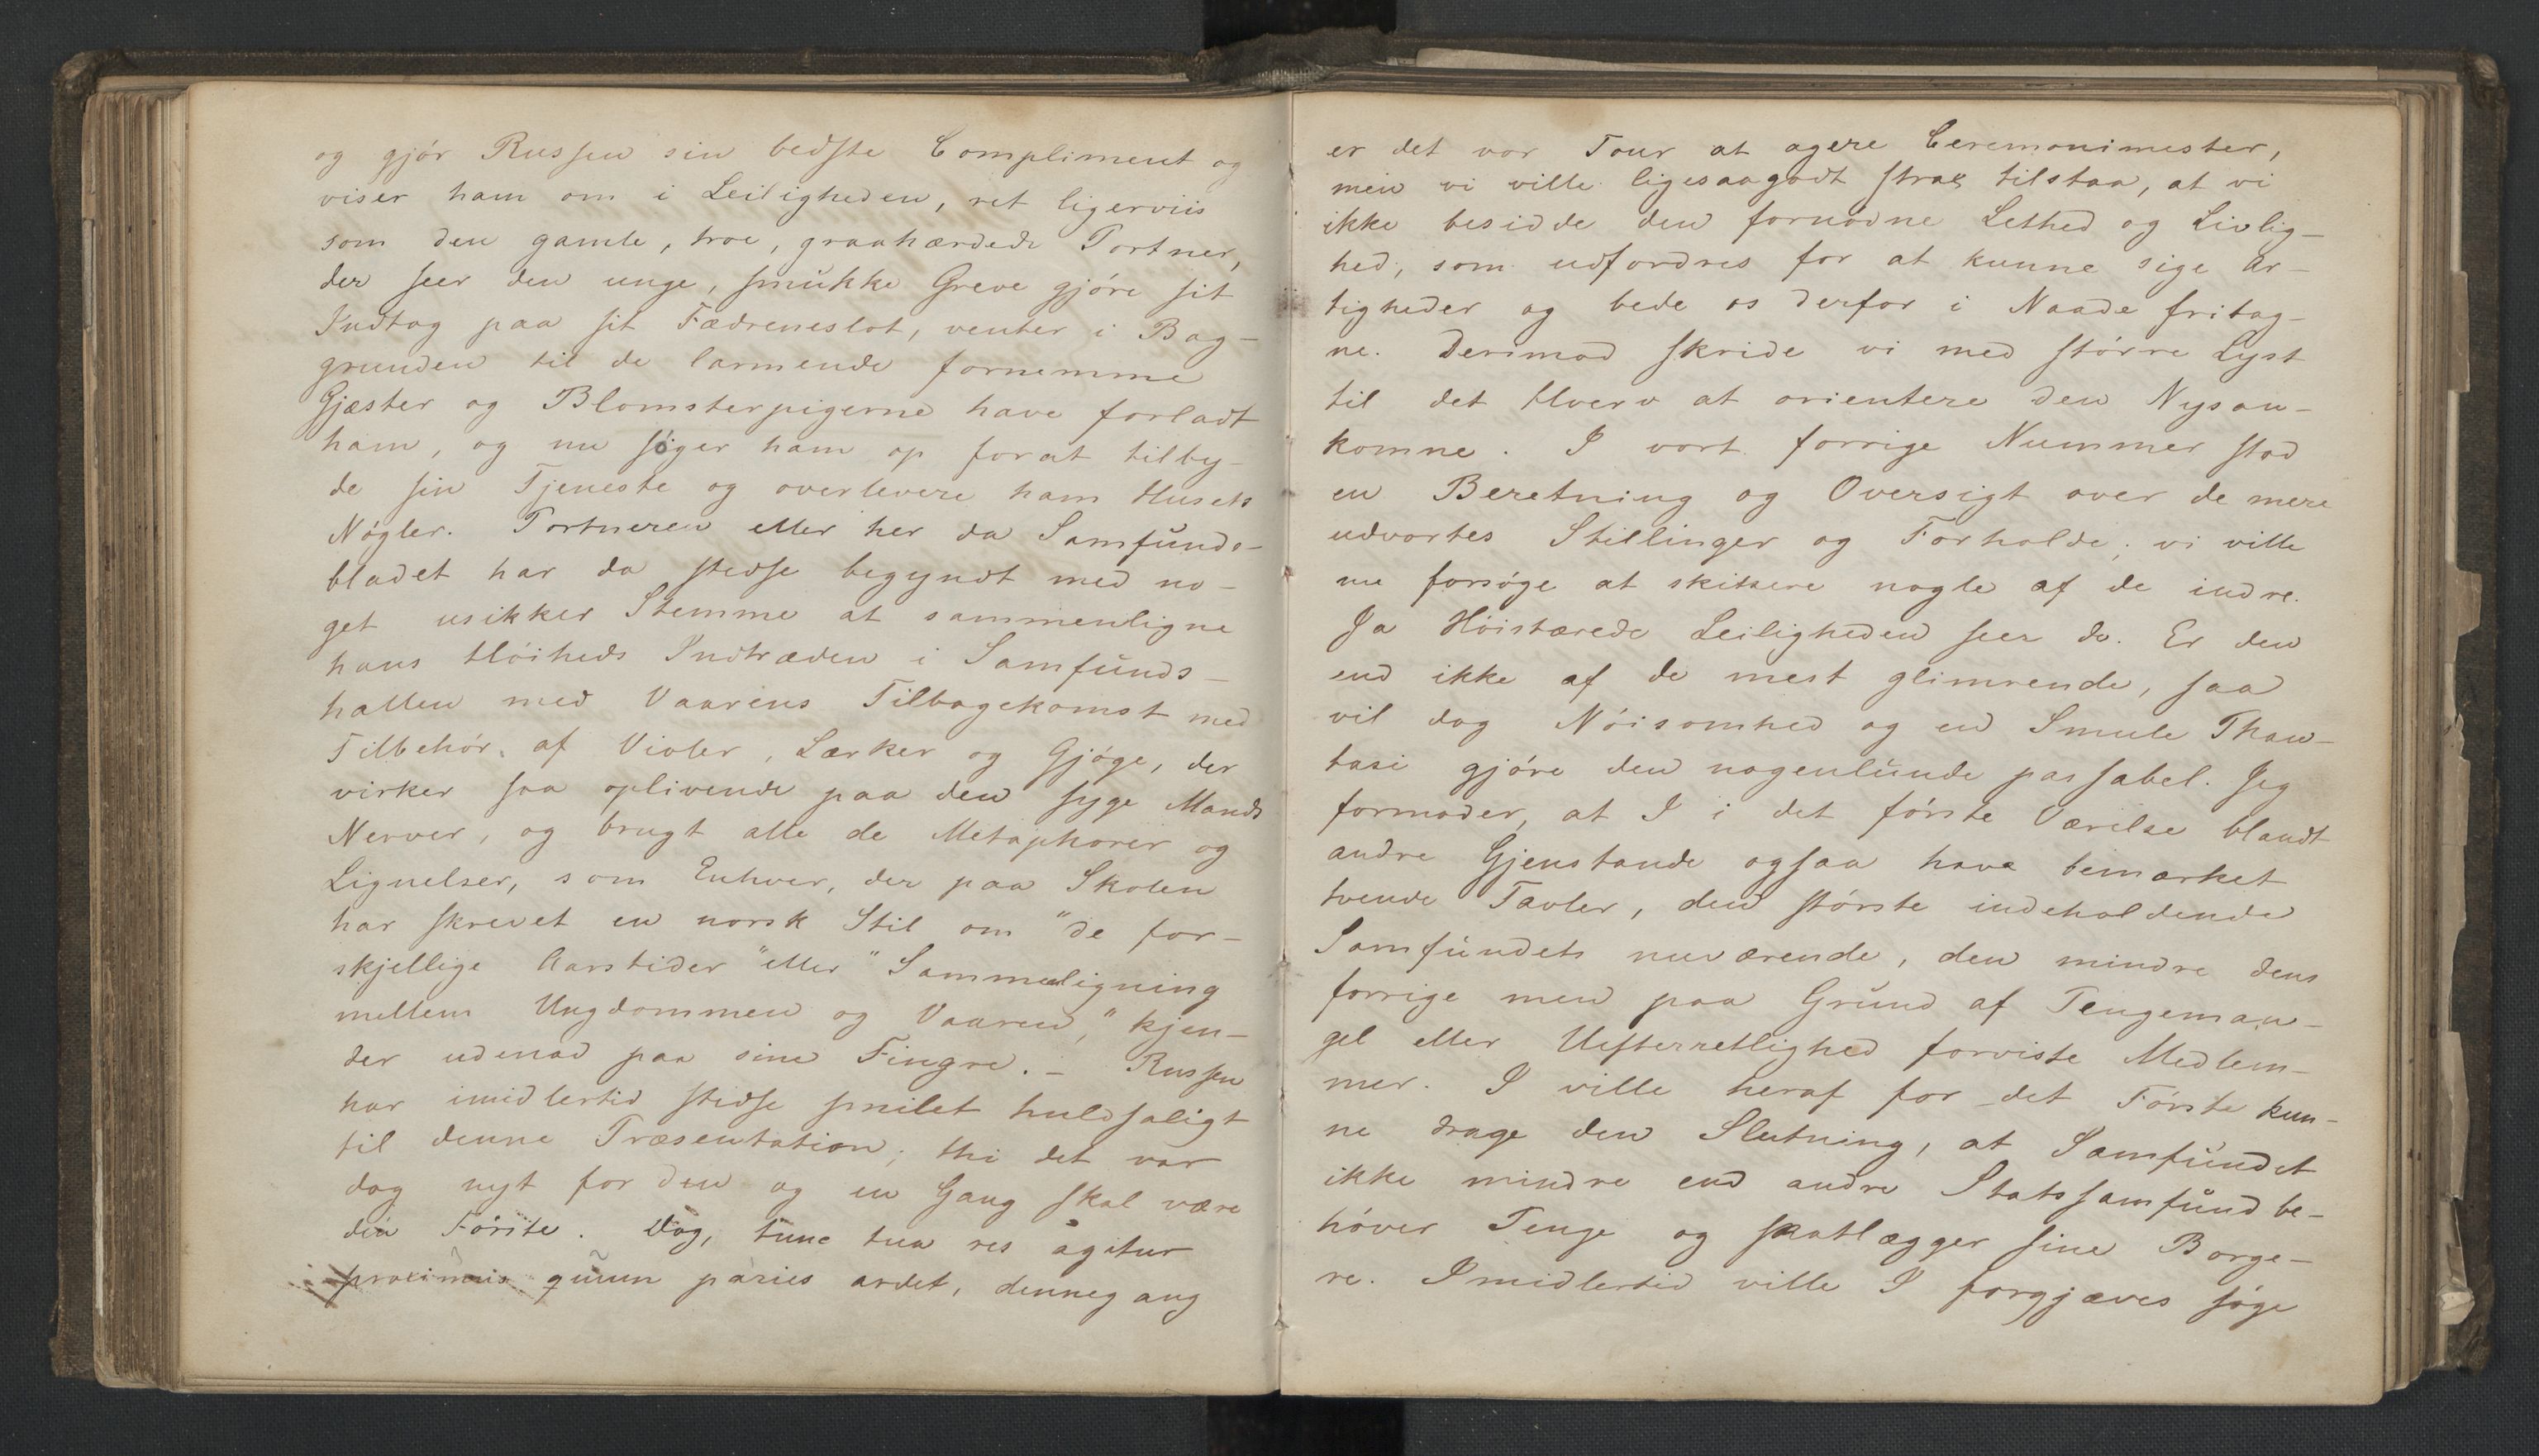 og gjør Russen sin bedste Compliment og
viser ham om i Leiligheden, ret ligerviis
som den gamle, troe, graahærdede Portner,
der seer den unge, smukke Greve gjøre sit
Indtog paa sit Fædreneslot, venter i Bag-
grunden til de larmende fornemme
Gjæster og Blomsterpigerne have forladt
ham, og nu søger ham op forat tilby-
de sin Tjeneste og overlevere ham Husets
Nøgler. Portneren eller her da Samfunds-
bladet har da stedse begyndt med no-
get usikker Stemme at sammenligne
hans Høiheds Indtræden i Samfunds-
hallen med Vaarens Tilbagekomst med
Tilbehør af Violer, Lærker og Gjøge, der
virker saa oplivende paa den syge Mands
Nerver, og brugt alle de Metaphorer og
Lignelser, som Enhver, der paa Skolen
har skrevet en norsk Stil om "de for-
skjellige Aarstider" eller "Sammenligning
mellem Ungdommen og Vaaren," kjen-
der udenad paa sine Fingre. – Russen
har imidlertid stedse smilet huldsaligt
til denne Præsentation; thi det var
dog nyt for den og en Gang skal være
den Første. Dog, tunc tua res agitur
proximus quum paries ardet, dennegang
er det vor Tour at agere Ceremonimester,
men vi ville ligesaagodt strax tilstaa, at vi
ikke besidde den fornødne Lethed og Livlig-
hed, som udfordres for at kunne sige Ar-
tigheder og bede os derfor i Naade fritag-
ne. Derimod skride vi med større Lyst
til det Hverv at orientere den Nysan-
komne. I vort forrige Nummer stod
en Beretning og Oversigt over de mere
udvortes Stillinger og Forholde; vi ville
nu forsøge at skitsere nogle af de indre.
Ja Høistærede Leiligheden seer De. Er den
end ikke af de mest glimrende, saa
vil dog Nøisomhed og en Smule Phan-
tasi gjøre den nogenlunde passabel. Jeg
formoder, at I i det første Værelse blandt
andre Gjenstande ogsaa have bemærket
tvende Tavler, den største indeholdende
Samfundets nuværende, den mindre dens
forrige men paa Grund af Pengeman-
gel eller Uefterretlighed forviste Medlem-
mer. I ville heraf for det Første kun-
ne drage den Slutning, at Samfundet
ikke mindre end andre Statssamfund be-
høver Penge og skatlægger sine Borge-
re. Imidlertid ville I forgjæves søge